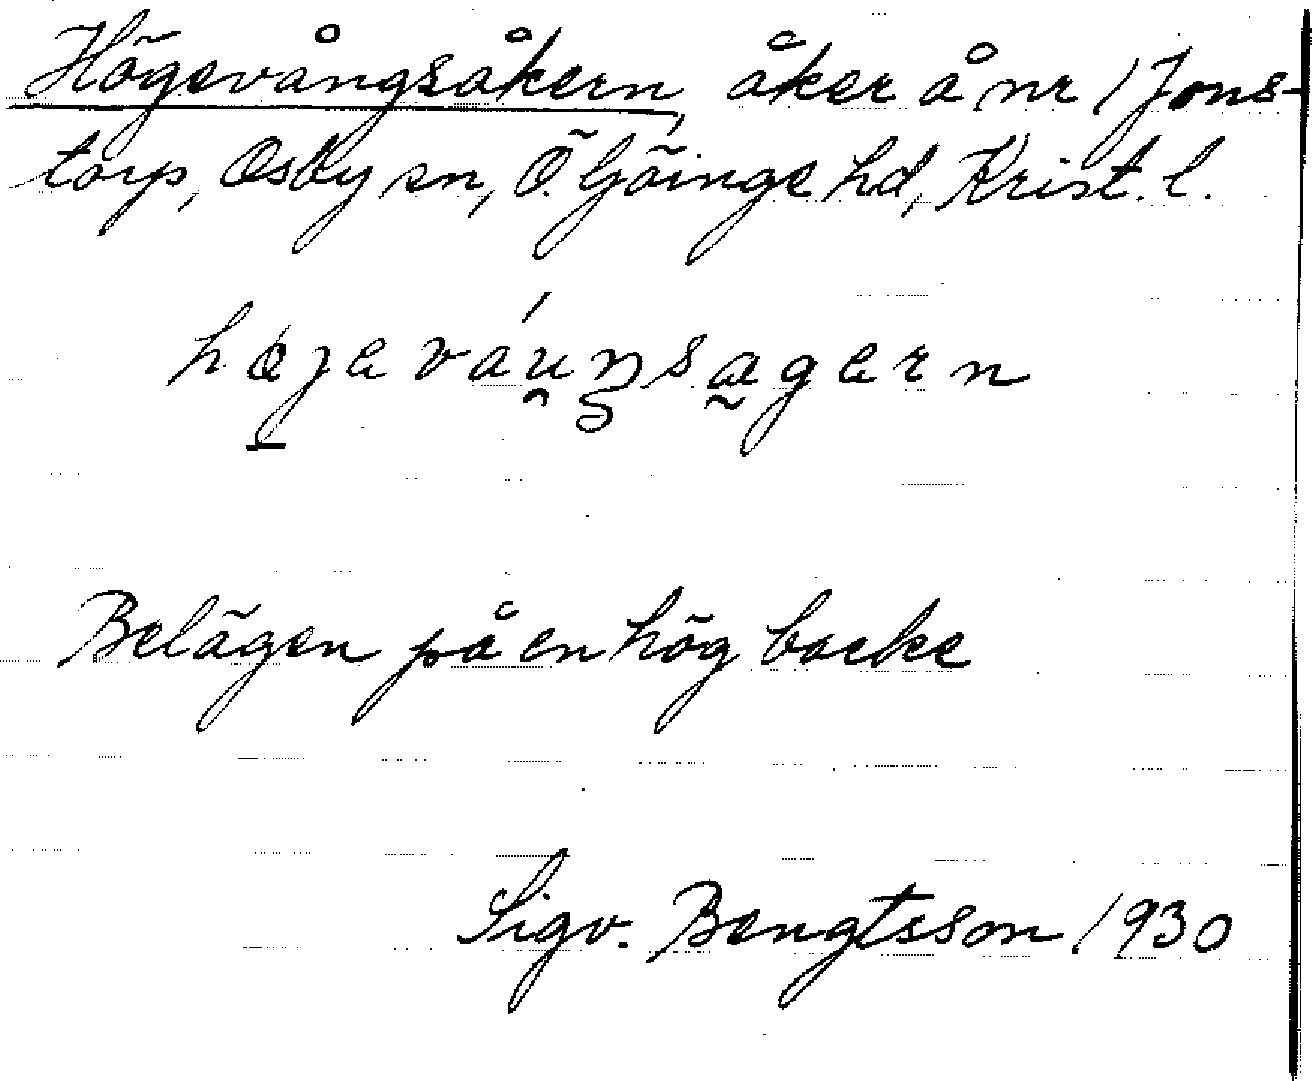 Högevångsåkern, åker å nr 1 Jons-
torp, Osby sn, Ö. Göinge hd, Krist. l.
Belägen på en hög backe
Sigv. Bengtsson 1930